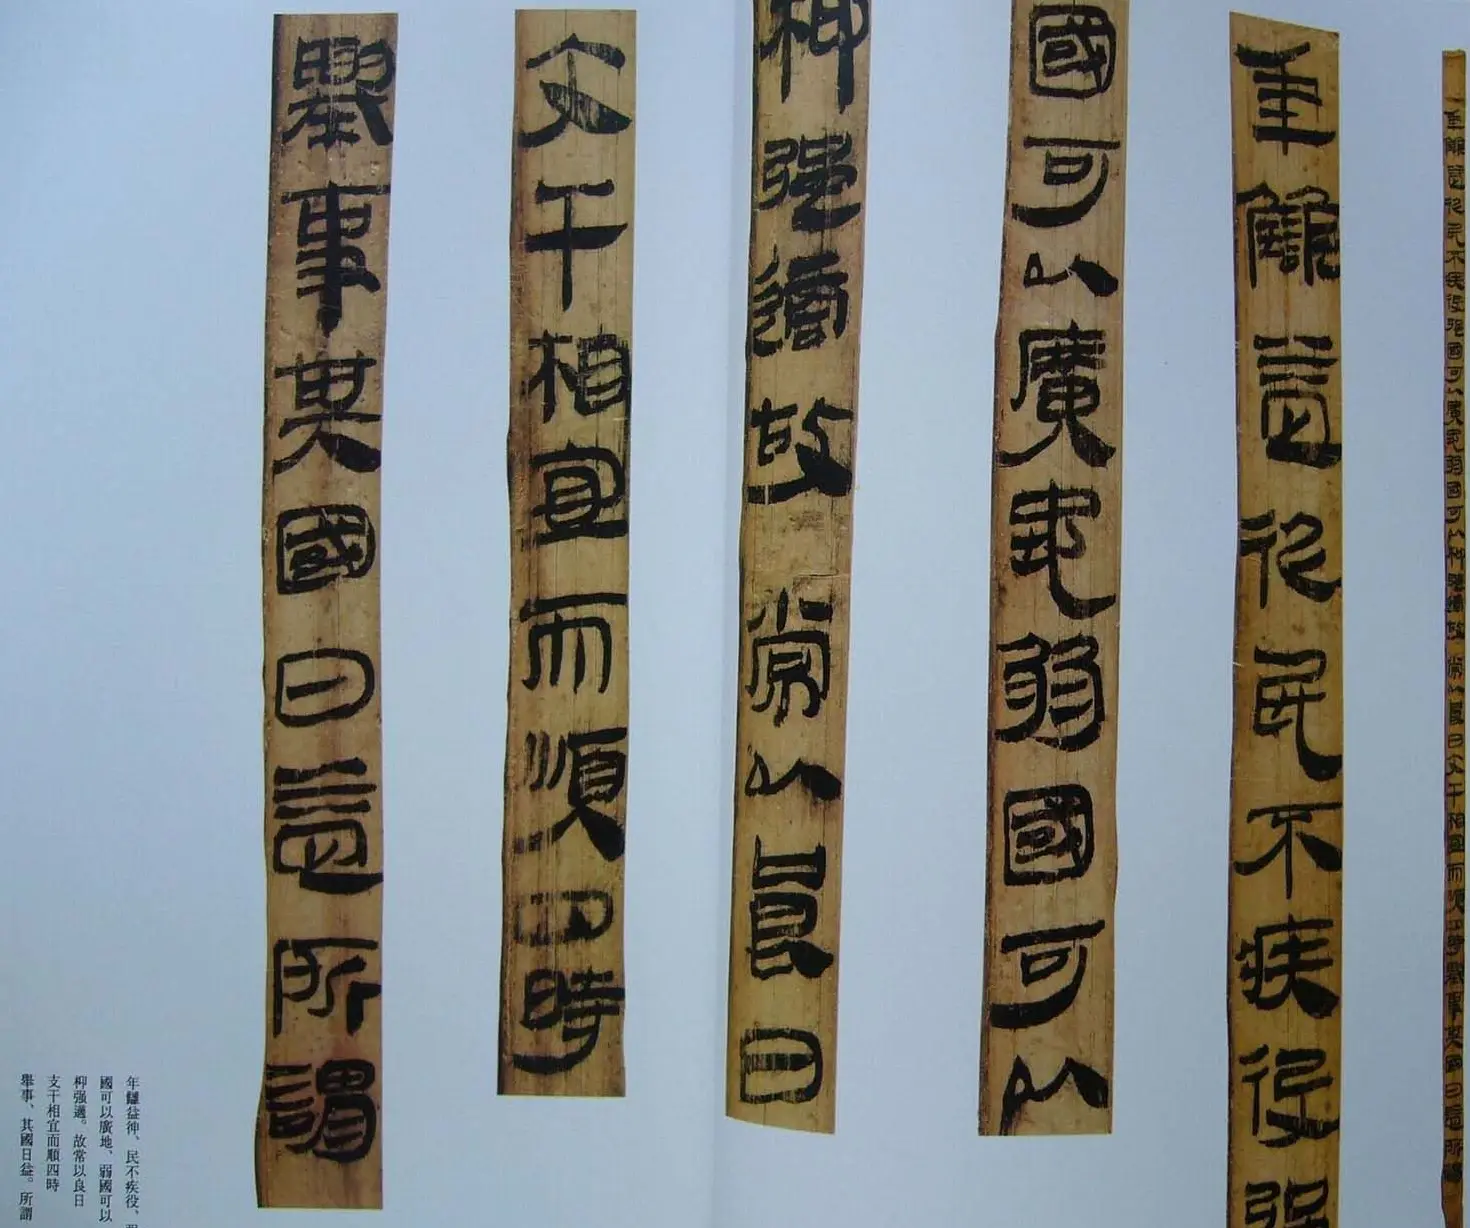 年益民不疾役强國可以廣地弱國可以抑强適故常以良日支干相宜而順四時舉事其國日益所謂
年益民不疾役强
國可以廣地弱國可以
抑强適故常以良日
支干相宜而順四時
舉事其國日益所謂
年益、民不疾役、
國可以廣地、弱國可以
抑强適。故常以良日
支干相宜而順四時
舉事、其國日益。所謂